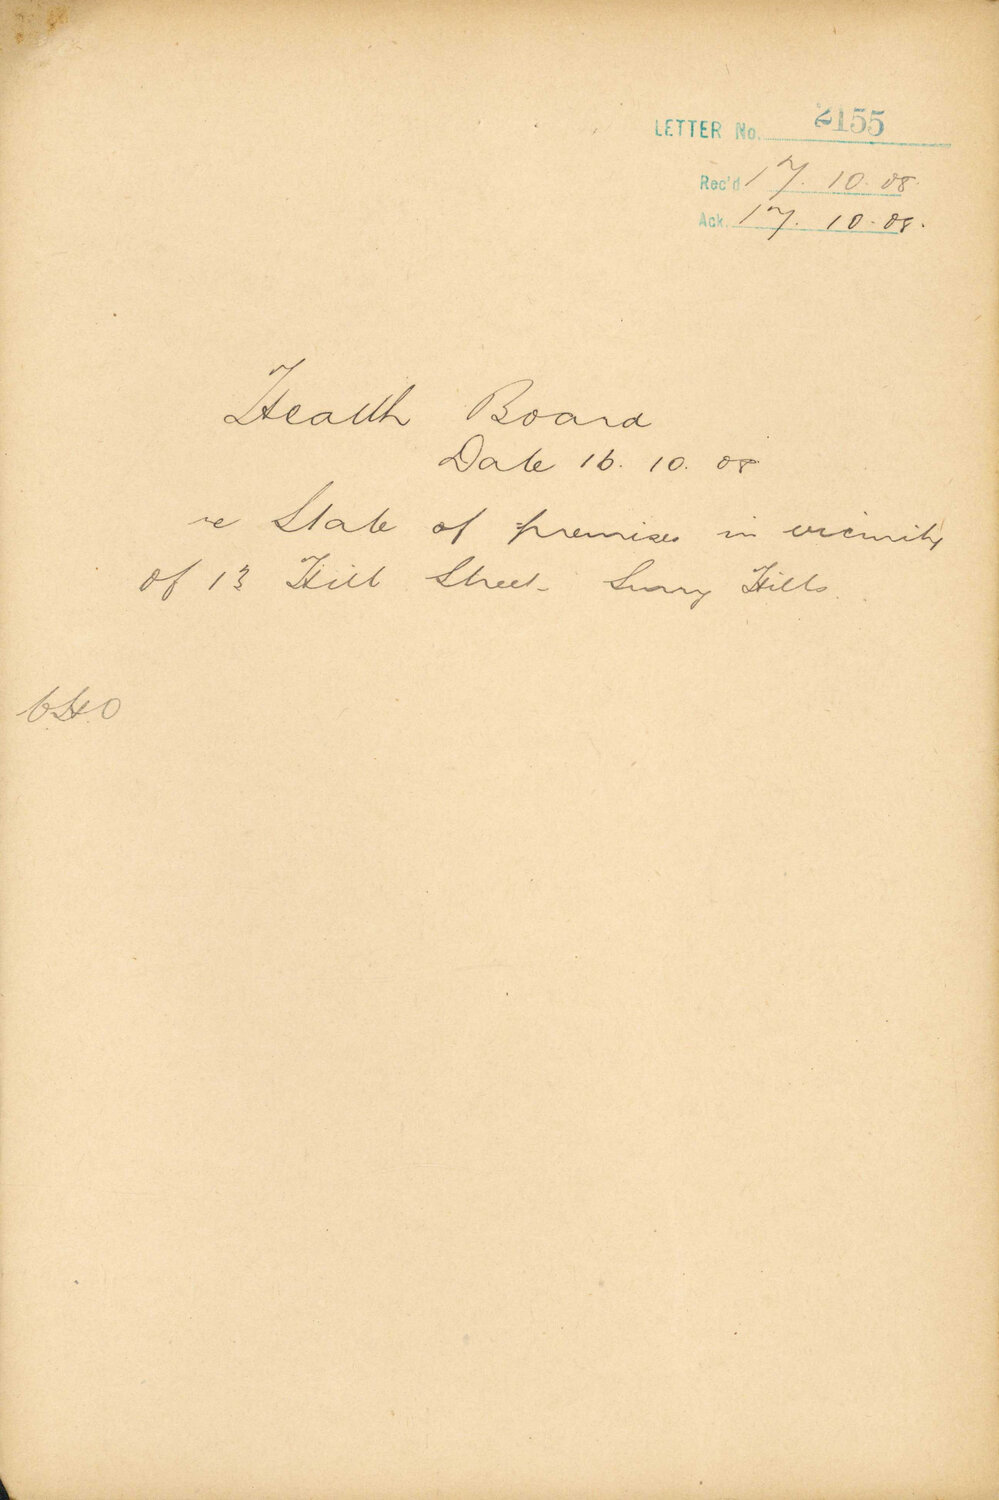 LETTER No. 2155
Rec'd 17. 10. 08.
Ack. 17. 10. 08.
Health Board
Date 16. 10. 08
re State of premises in vicinity
of 13 Hill Street. Surry Hills.
CHO